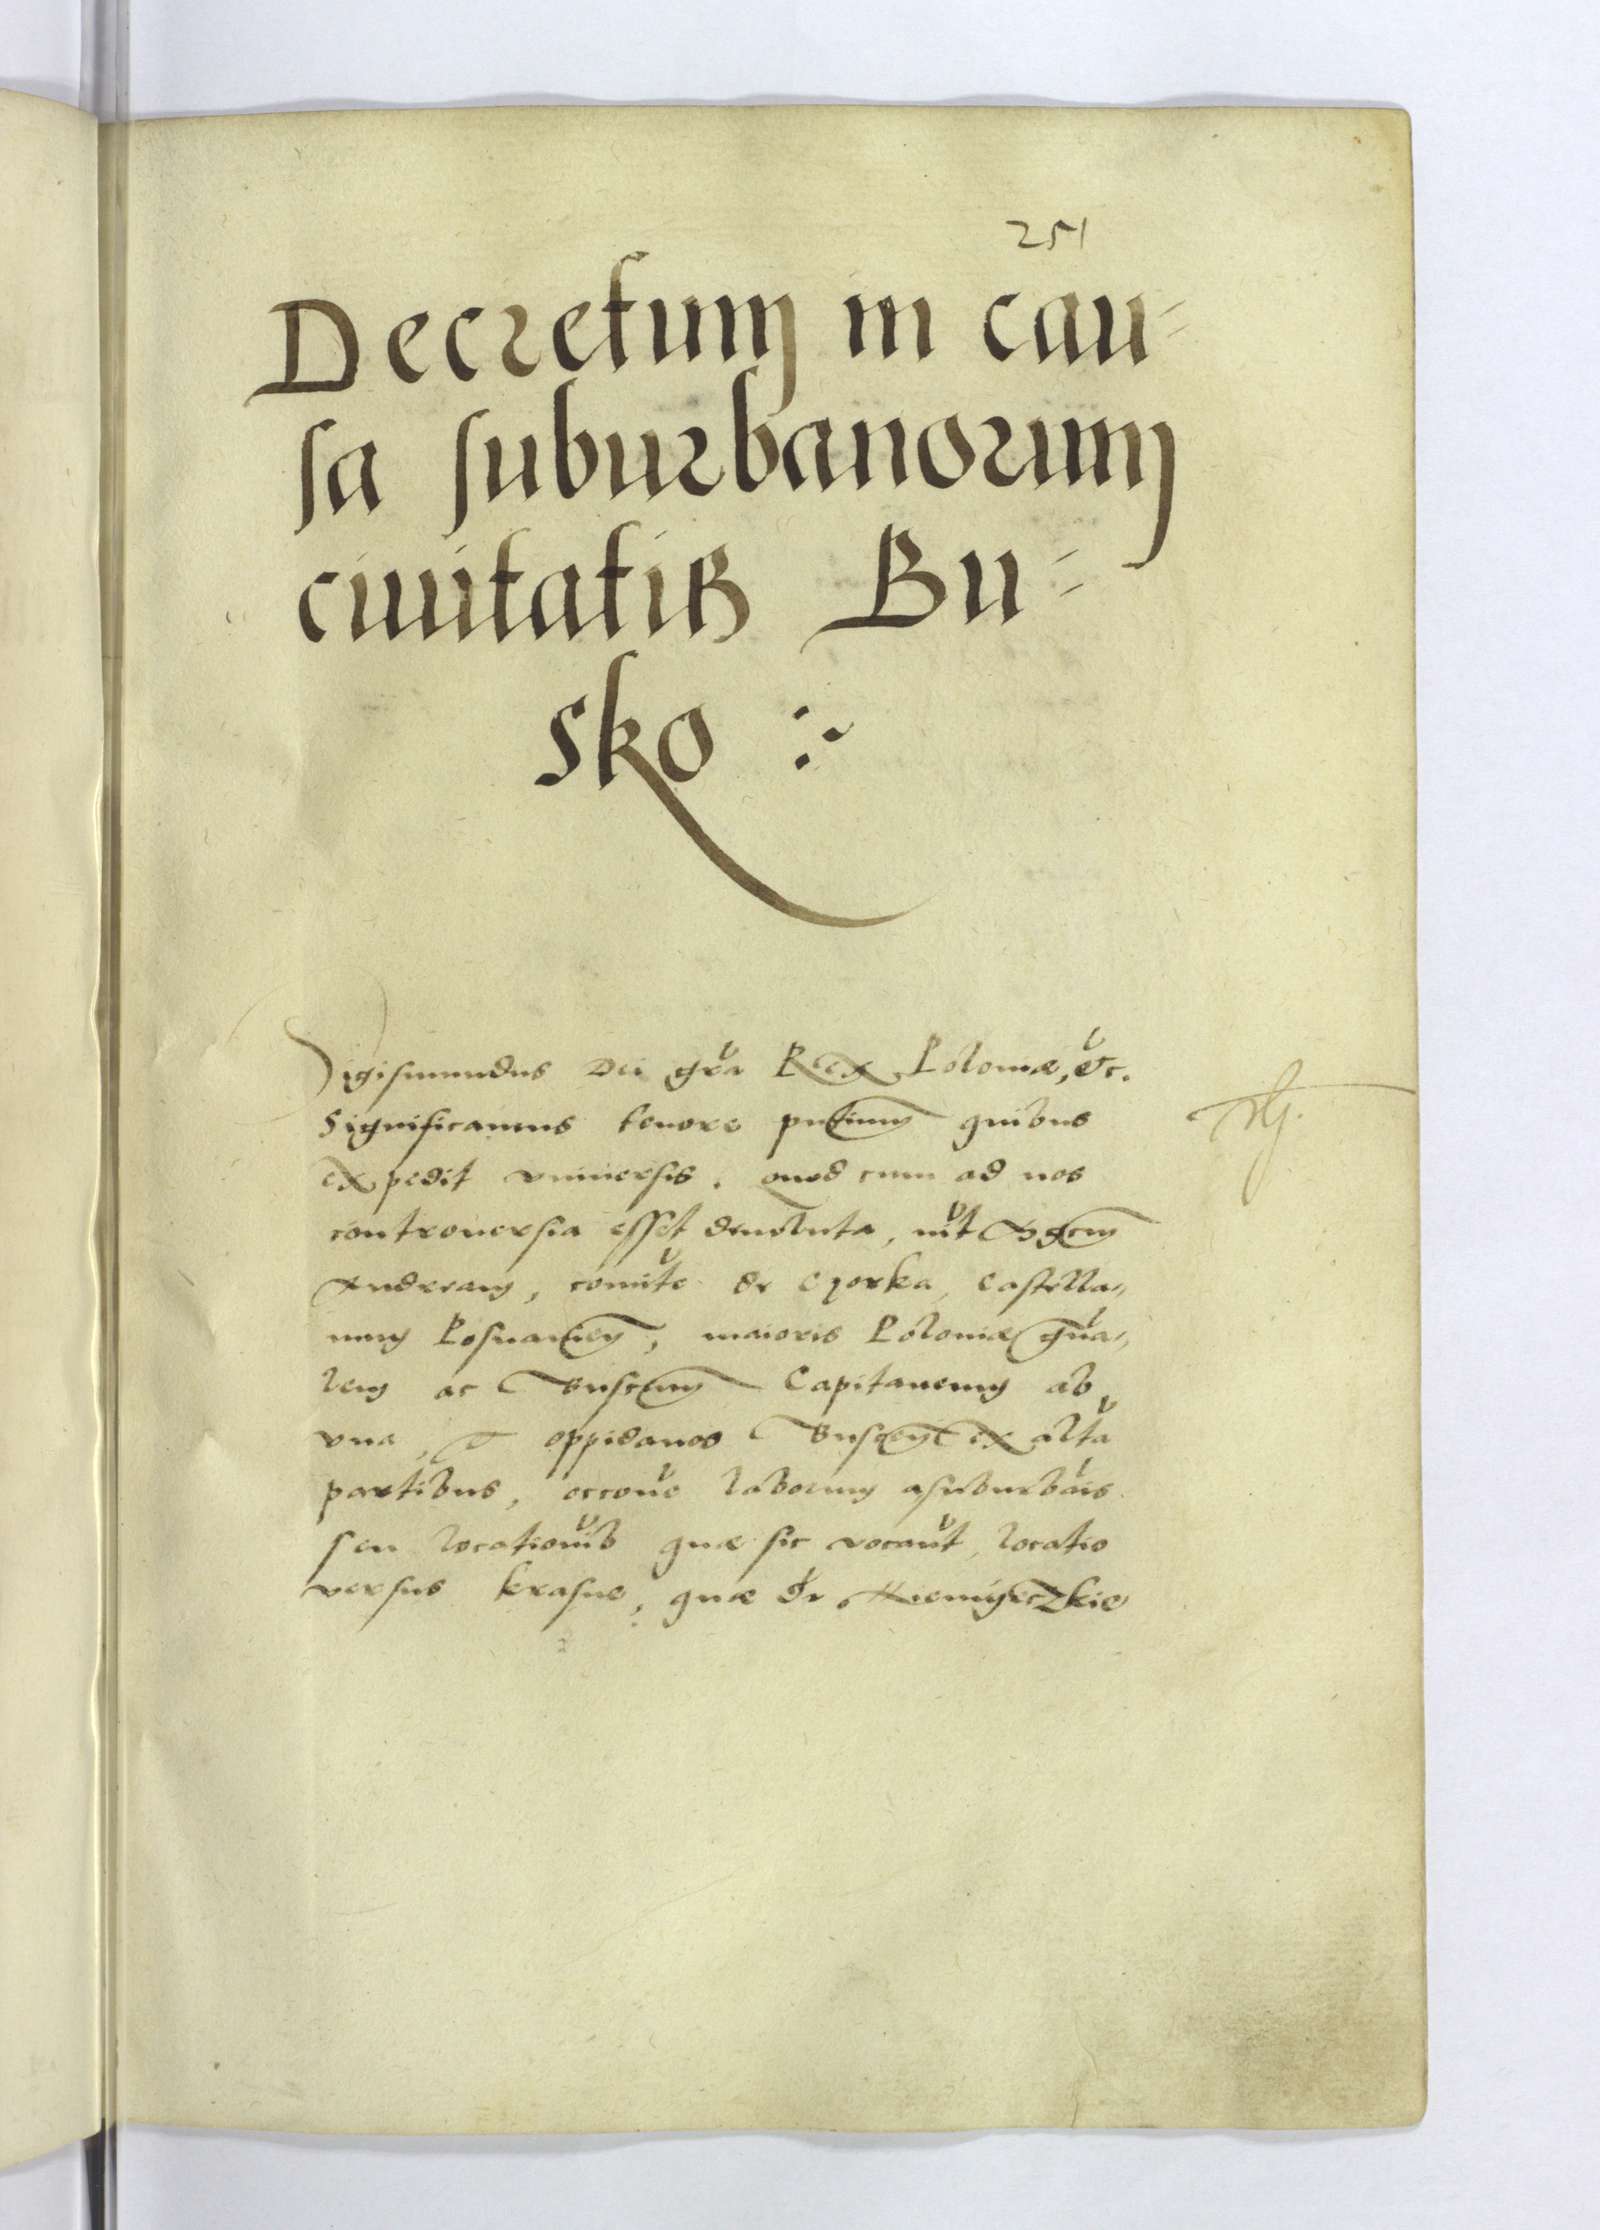 251
Decretum in cau=
sa suburbanorum
ciuitatis Bu=
sko :~
Sigismundus Dei gra Rex Poloniæ, &c.
Significamus tenore pntium quibus
expedit vniuersis. quod cum ad nos
controuersia esset deuoluta, int Mgcum
Andream, comite de Gorka, Castella=
num Posnanien, maioris Poloniæ gna=
lem ac Buscen Capitaneum ab
vna, et oppidanos Buscen ex alta
partibus, occone laborum a suburbais
seu locationib quæ sic vocant, locatio
versus krasne, quæ de Niemyeczkie